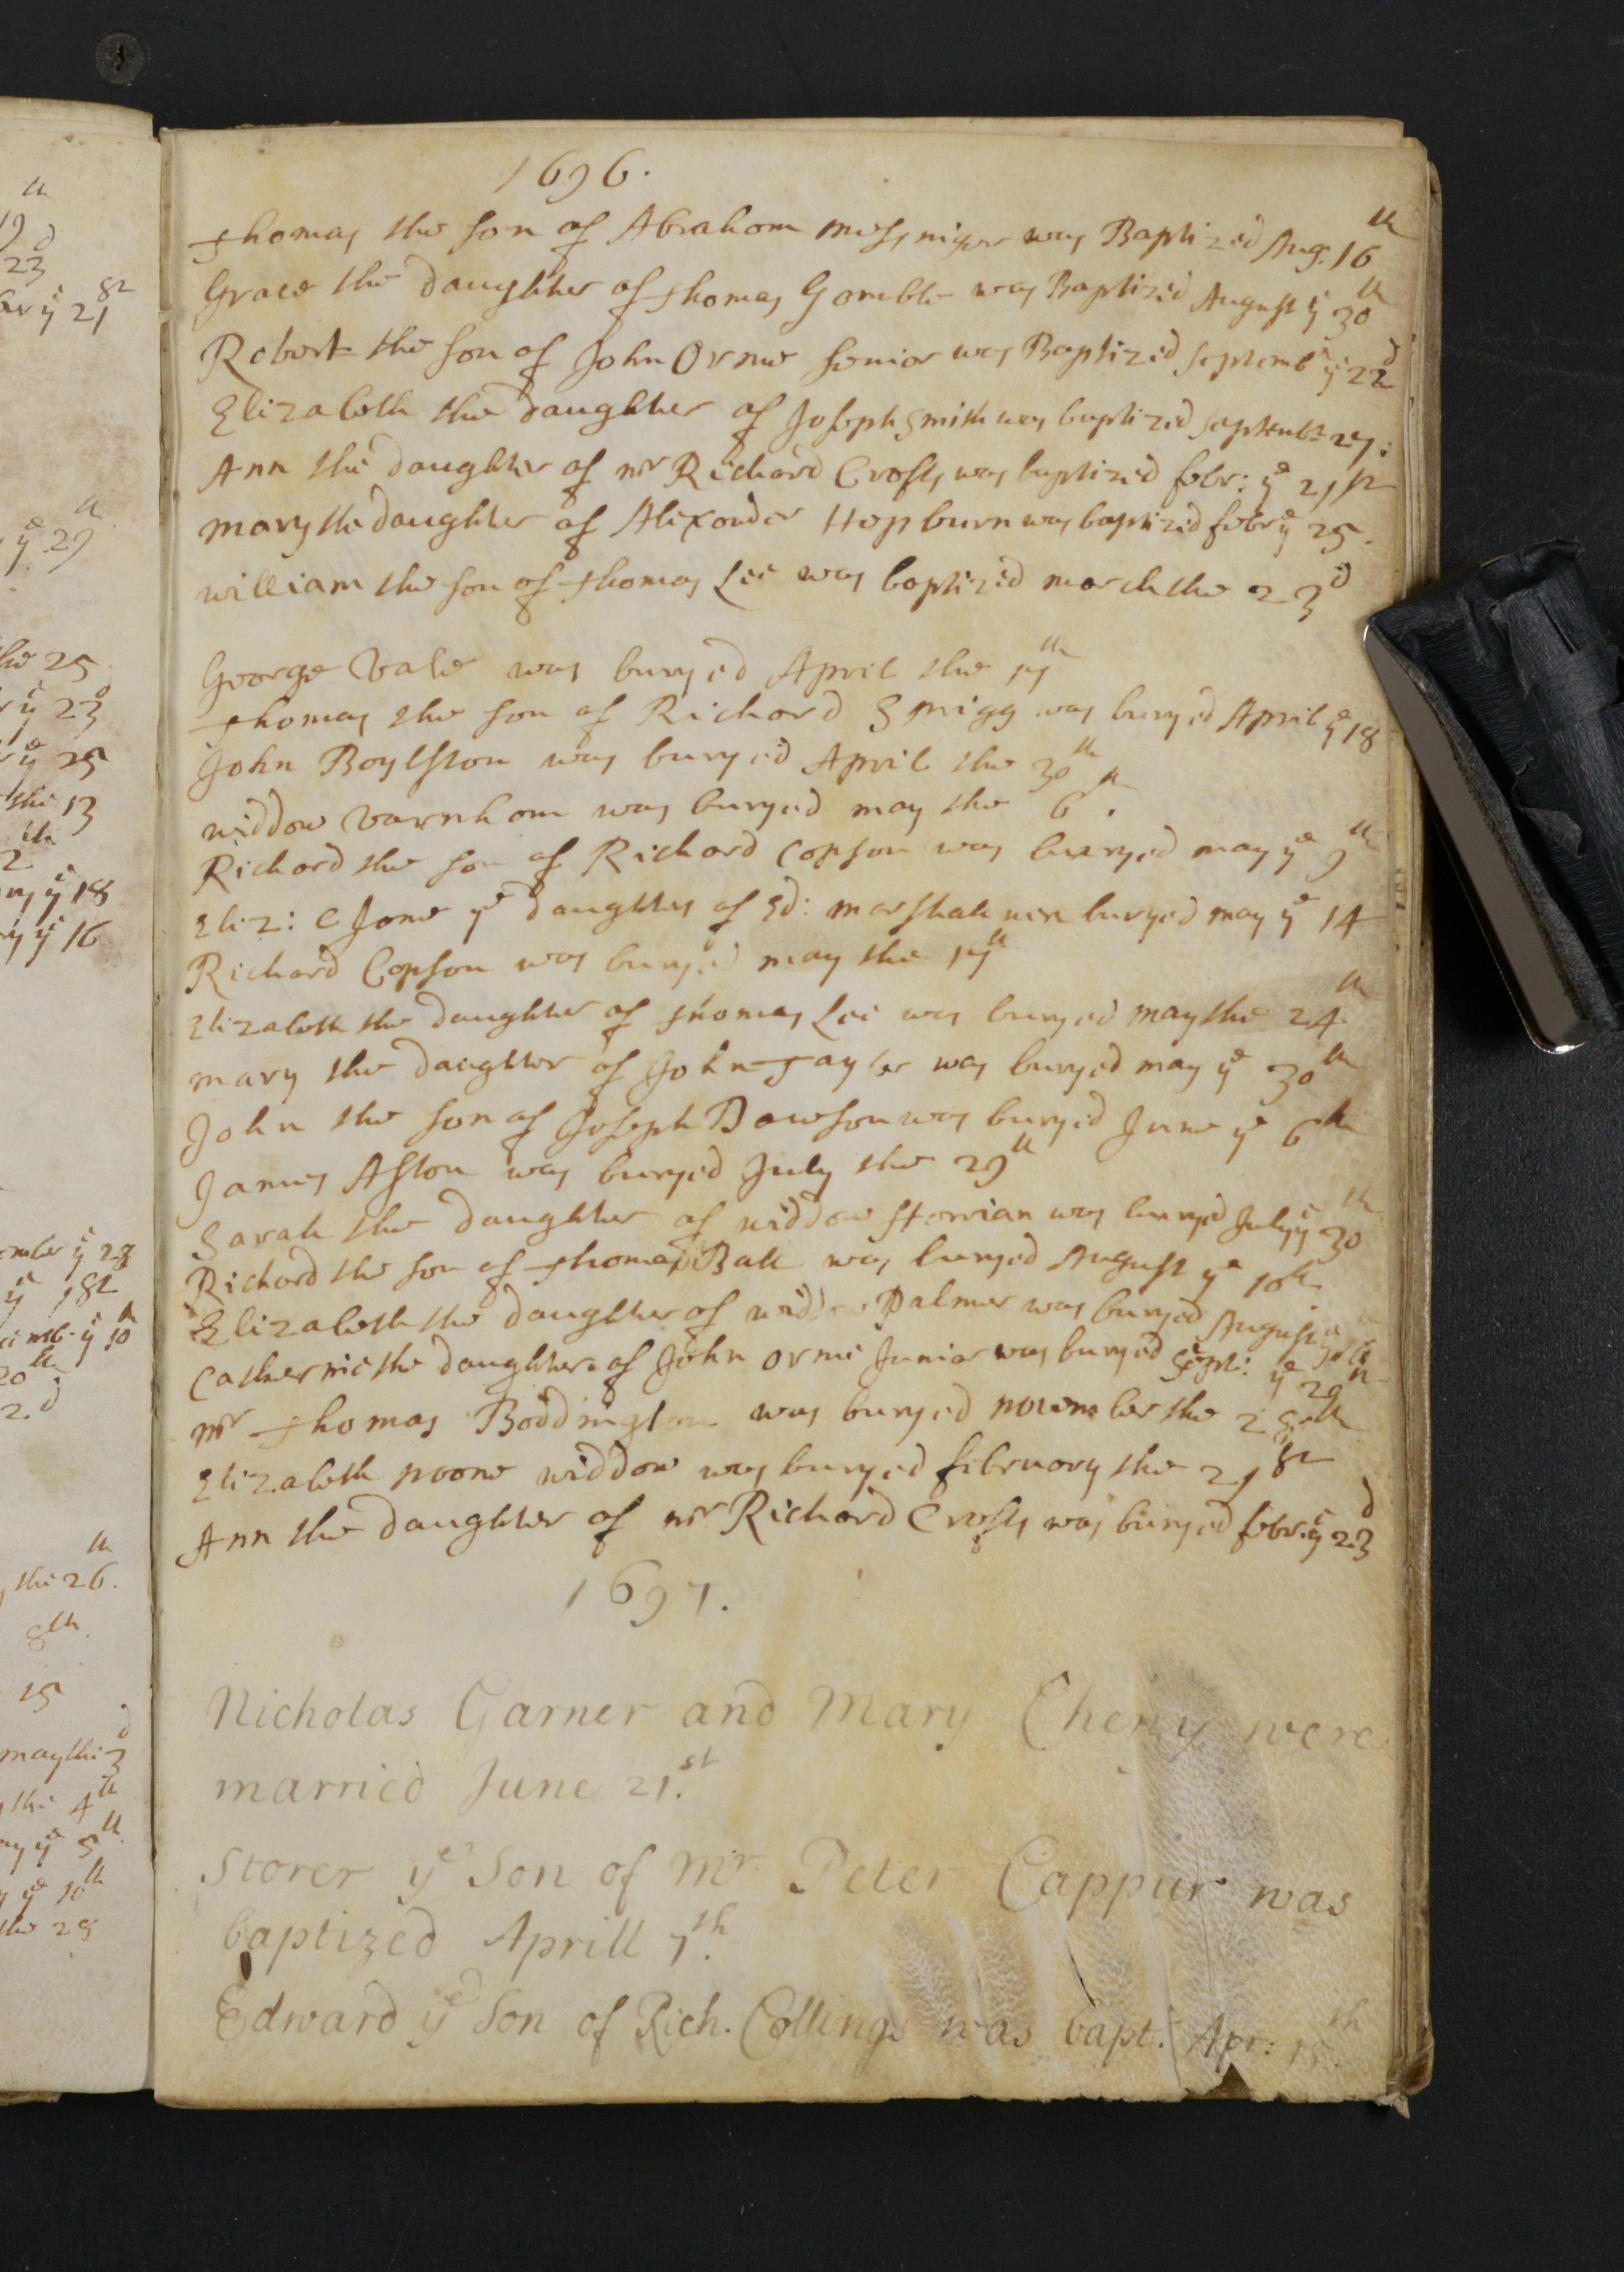 1696.
Thomas the son of Abraham was Baptized Aug: 16th
Grace the daughter of Thomas Gamble was Baptized August ye 30th
Robert the son of John Orme senior was Baptized Septemb ye 22d
Elizabeth the daughter of Joseph Smith was baptized Septembr 27:
Ann the daughter of mr Richard Crofts was baptized febr: ye 21st
mary the daughter of Alexander Hepburn was baptized febr ye 25.
william the son of Thomas Lee was baptized march the 23d
George Vale was buryed April the 17th
Thomas the son of Richard Sprigg was buryed April ye 18
John Boylston was buryed April the 30th
widdow Varnham was buryed may the 6th.
Richard the son of Richard Copson was buryed may ye 9th
Eliz: & Jone ye daughters of Ed: marshall were buryed may ye 14
Richard Copson was buryed may the 17th
Elizabeth the daughter of Thomas Lee was buryed may the 24th
mary the daughter of John Tayler was buryed may ye 30th
John the son of Joseph Dawson was buryed June ye 6th
James Aston was buryed July the 29th
Sarah the daughter of widdow was buryed July ye 30th
Richard the son of Thomas Ball was buryed August ye 10th
Elizabeth the daughter of widdow Palmer was buryed August ye
Catherine the daughter of John Orme Junior was buryed Sept: ye 29th
mr Thomas Boddington was buryed november the 28th
Elizabeth moone widdow was buryed february the 21st
Ann the daughter of mr Richard Crofts was buryed febr: ye 23d
1697.
Nicholas Garner and Mary Cheny were
married June 21.st
Storer ye Son of Mr. Peter Cappur was
baptized Aprill 7.th
Edward ye Son of Rich. Collings was bapt: Apr: 15.th
u
19
23d
ye 21st
ye 29
the 25
ye 23d
ye 25
the 13
2th
ye 18
ye 16
ember ye 28
ye 1st
ye 10th
20th
2d
the 26.th
8th
15
may the 3d
the 4th
ye 5th
ye 10th
the 28